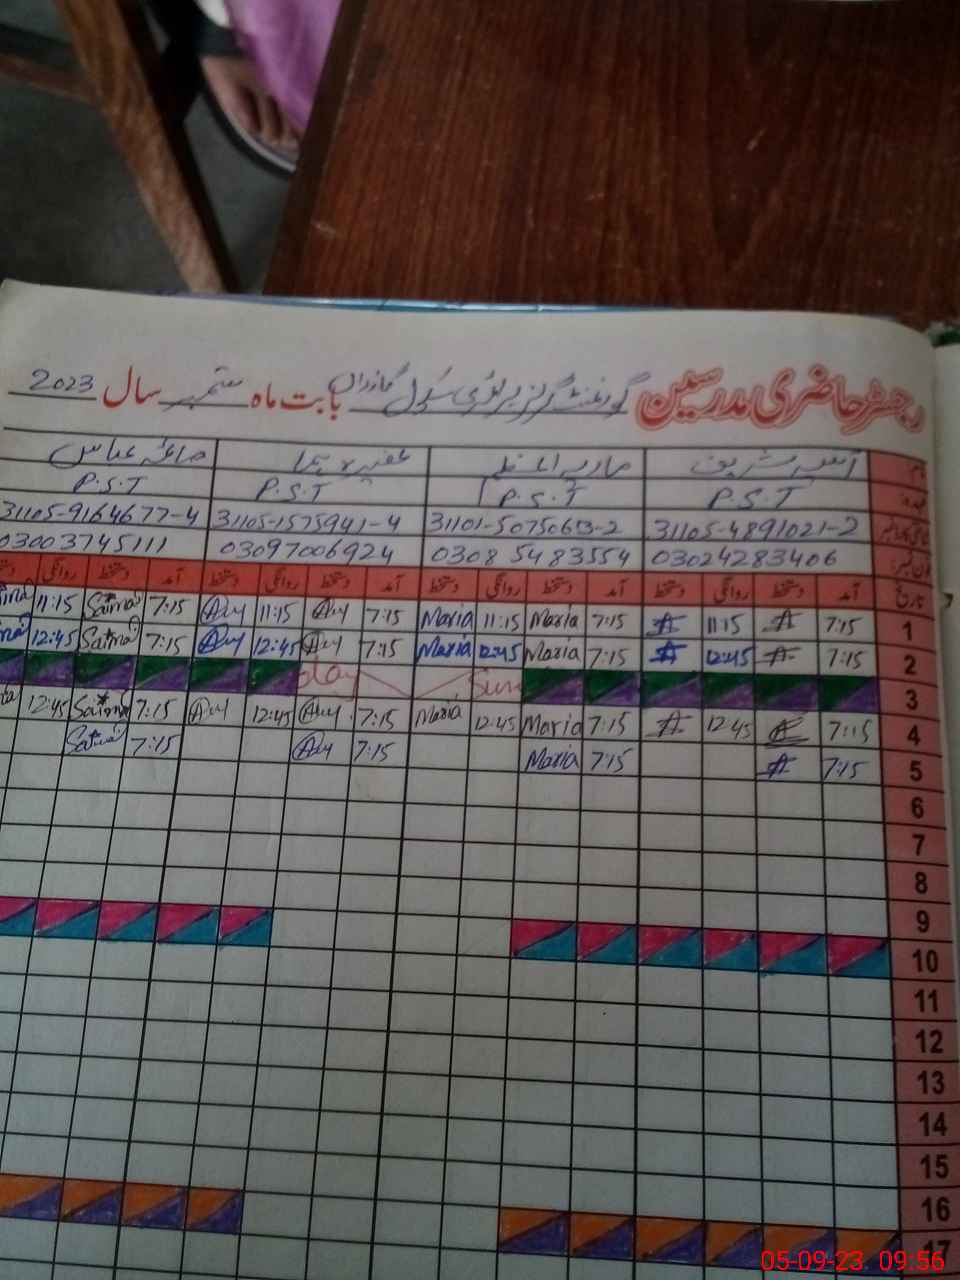 رجسٹر حاضری مدرسین گورنمنٹ گرلز پرائمری سکول بابت ماہ ستمبر سال 2023
نام: آسیہ شریف ماریہ صائمہ عباس
عہدہ: P.S.T P.S.T P.S.T P.S.T
31105-4891021-2 31101-5075063-2 31105-1575941-4 31105-9164677-4
فون نمبر: 03024283406 0308 5483554 03097006924 03003745111
تاریخ آمد دستخط روانگی دستخط آمد دستخط روانگی دستخط آمد دستخط روانگی دستخط آمد دستخط روانگی دستخط
1 7:15 A 11:15 A 7:15 Maria 11:15 Maria 7:15 11:15 7:15 Saima 11:15
2 7:15 A 12:45 A 7:15 Maria 12:45 Maria 7:15 12:45 7:15 Saima 12:45
3 Sunday
4 7:15 A 12:45 A 7:15 Maria 12:45 Maria 7:15 12:45 7:15 Saima 12:45
5 7:15 A 7:15 Maria 7:15 7:15 Saima
6
7
8
9
10
11
12
13
14
15
16
17
05-09-23 09:56